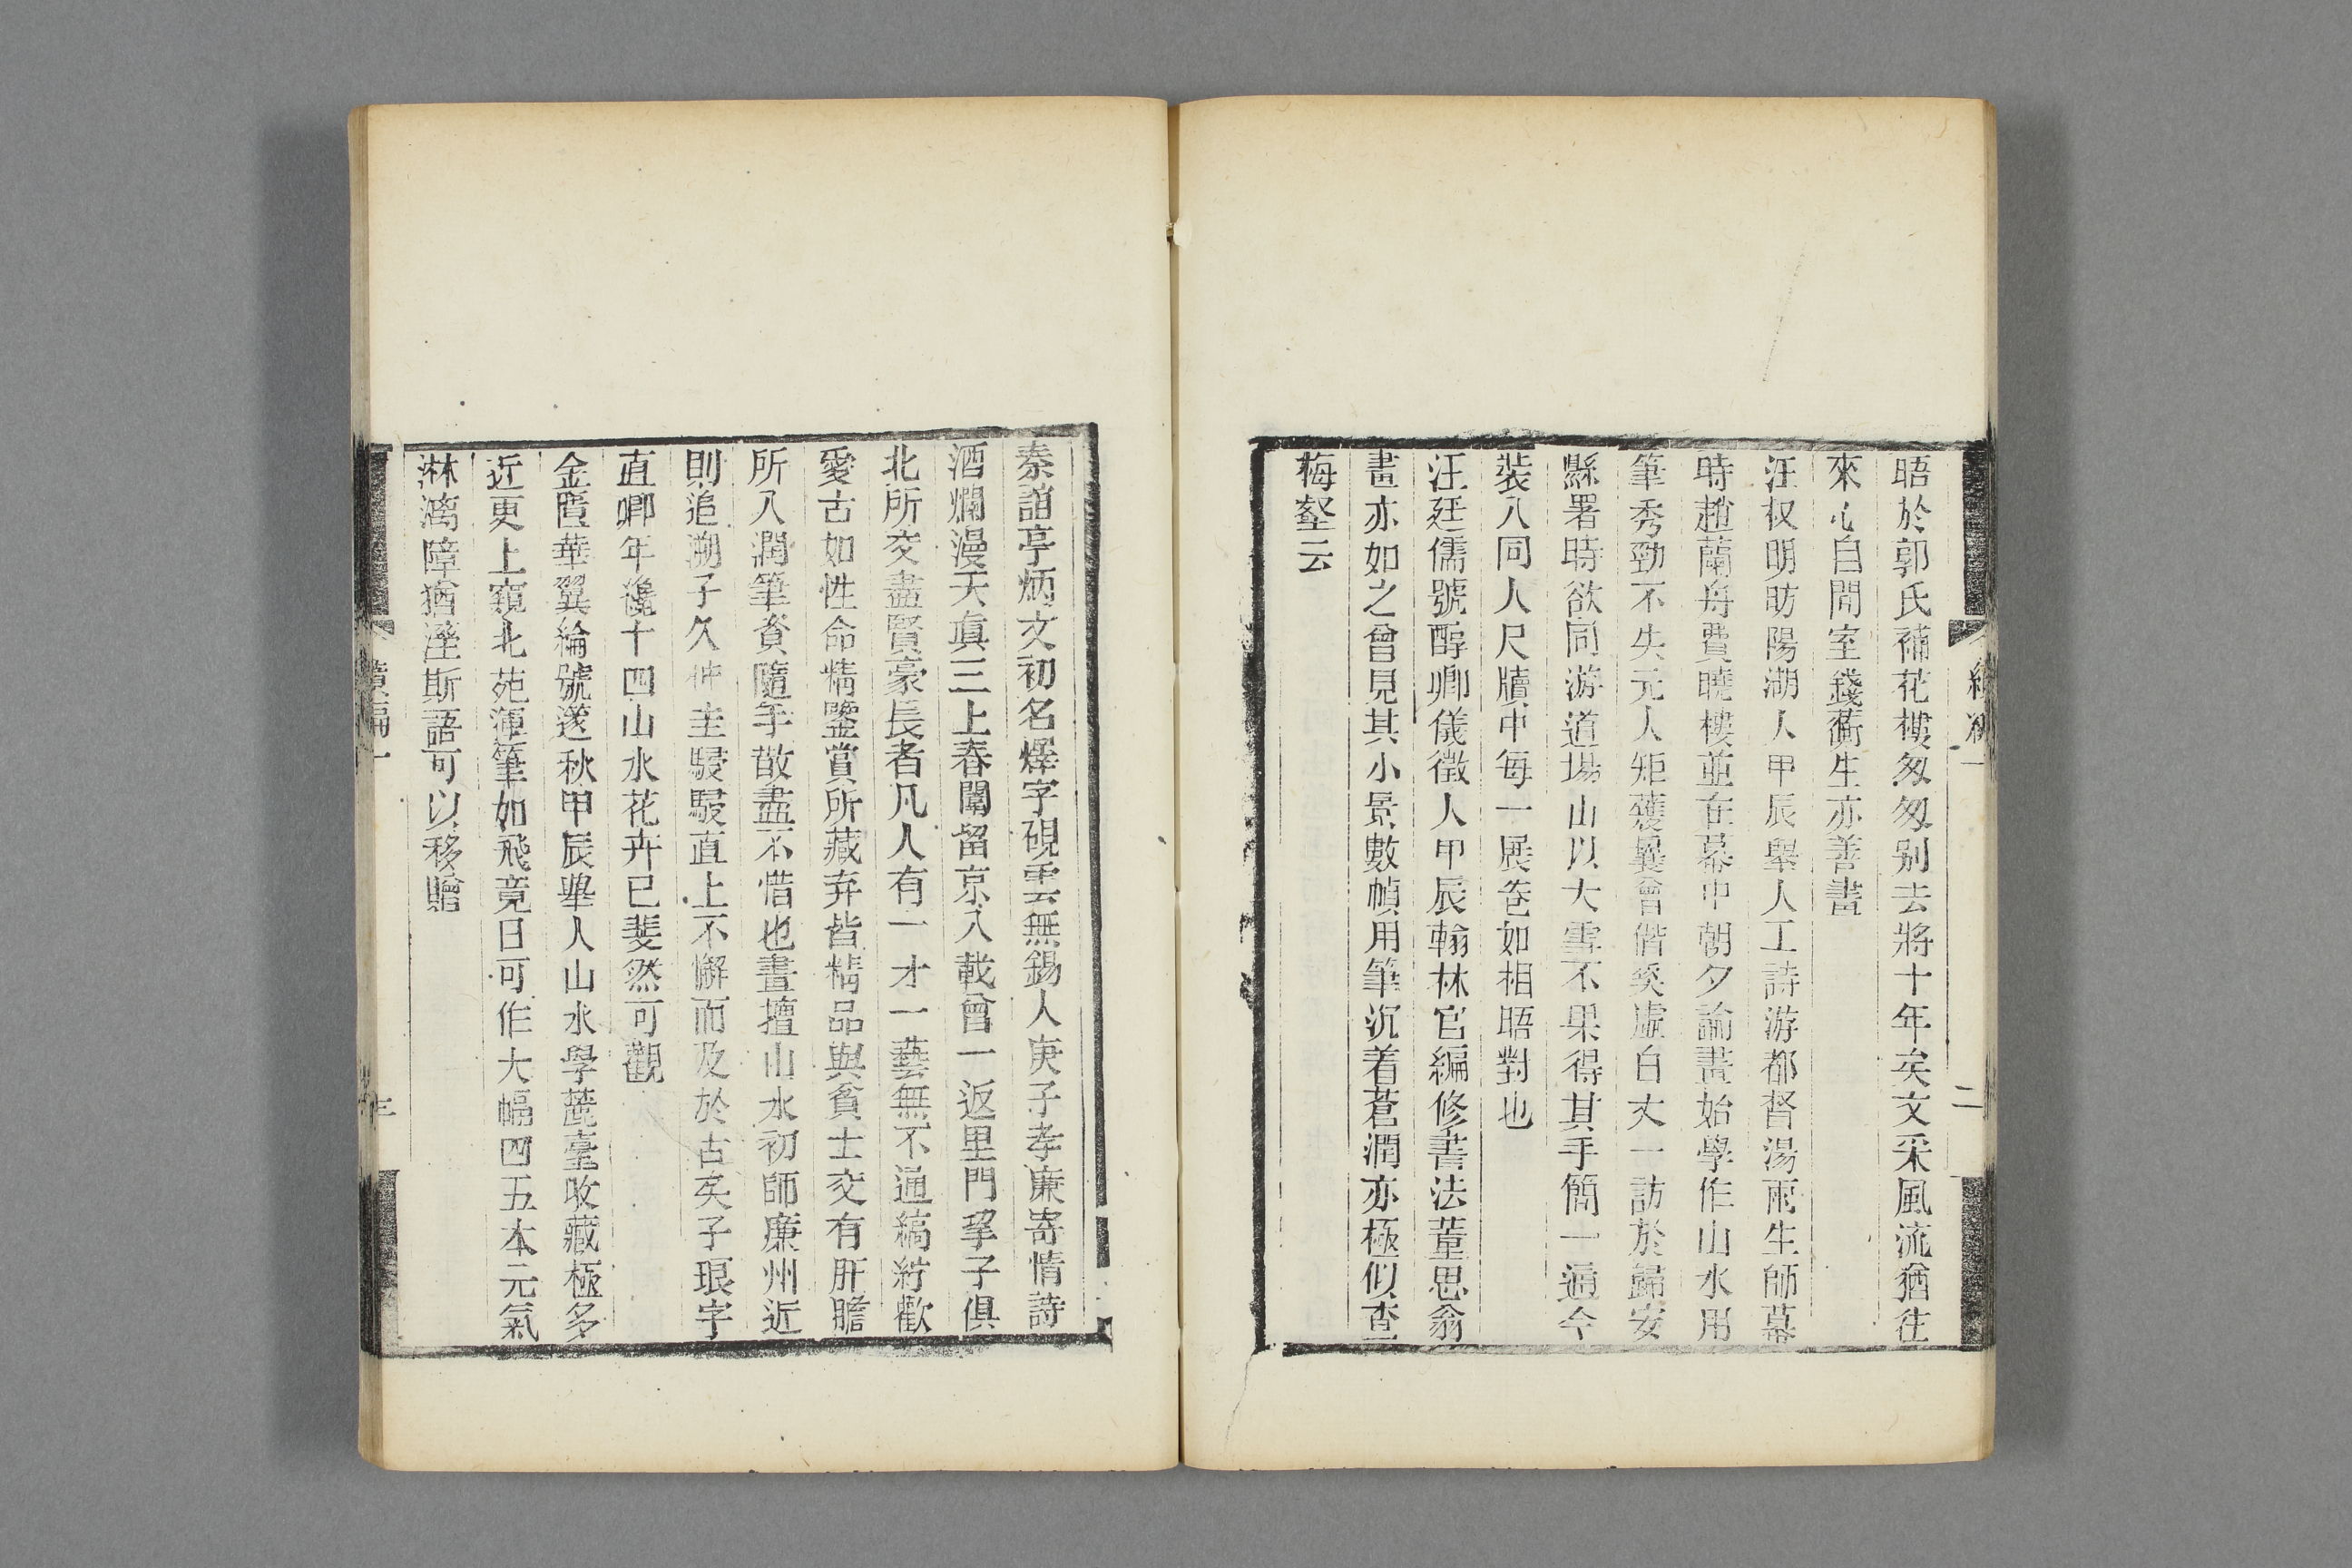 晤於郭氏補花樓匆匆别去將十年矣文采風流猶往
來心目間室錢蘅生亦善畫
汪叔明昉陽湖人甲辰舉人工詩游都督湯雨生師幕
時趙蘭舟費曉樓並在幕中朝夕論畫始學作山水用
筆秀勁不失元人矩矱曩曾偕奚虛白丈一訪於歸安
縣署時欲同游道場山以大雪不果得其手簡一通今
裝入同人尺牘中每一展卷如相晤對也
汪廷儒號醇卿儀徵人甲辰翰林官編修書法董思翁
畫亦如之曾見其小景數幀用筆沉着蒼潤亦極似查
梅壑云
二
秦誼亭炳文初名燡字硯雲無錫人庚子孝廉寄情詩
酒爛漫天眞三上春闈留京八載曾一返里門挈子俱
北所交盡賢豪長者凡人有一才一藝無不通縞紵歡
愛古如性命精鑒賞所藏弆皆精品與貧士交有肝膽
所入潤筆資隨手散盡不惜也畫擅山水初師廉州近
則追溯子久仲圭駸駸直上不懈而及於古矣子琅字
直卿年纔十四山水花卉已斐然可觀
金匱華翼綸號篴秋甲辰舉人山水學麓臺收藏極多
近更上窺北苑渾筆如飛竟日可作大幅四五本元氣
淋漓障猶溼斯語可以移贈
續編一
三